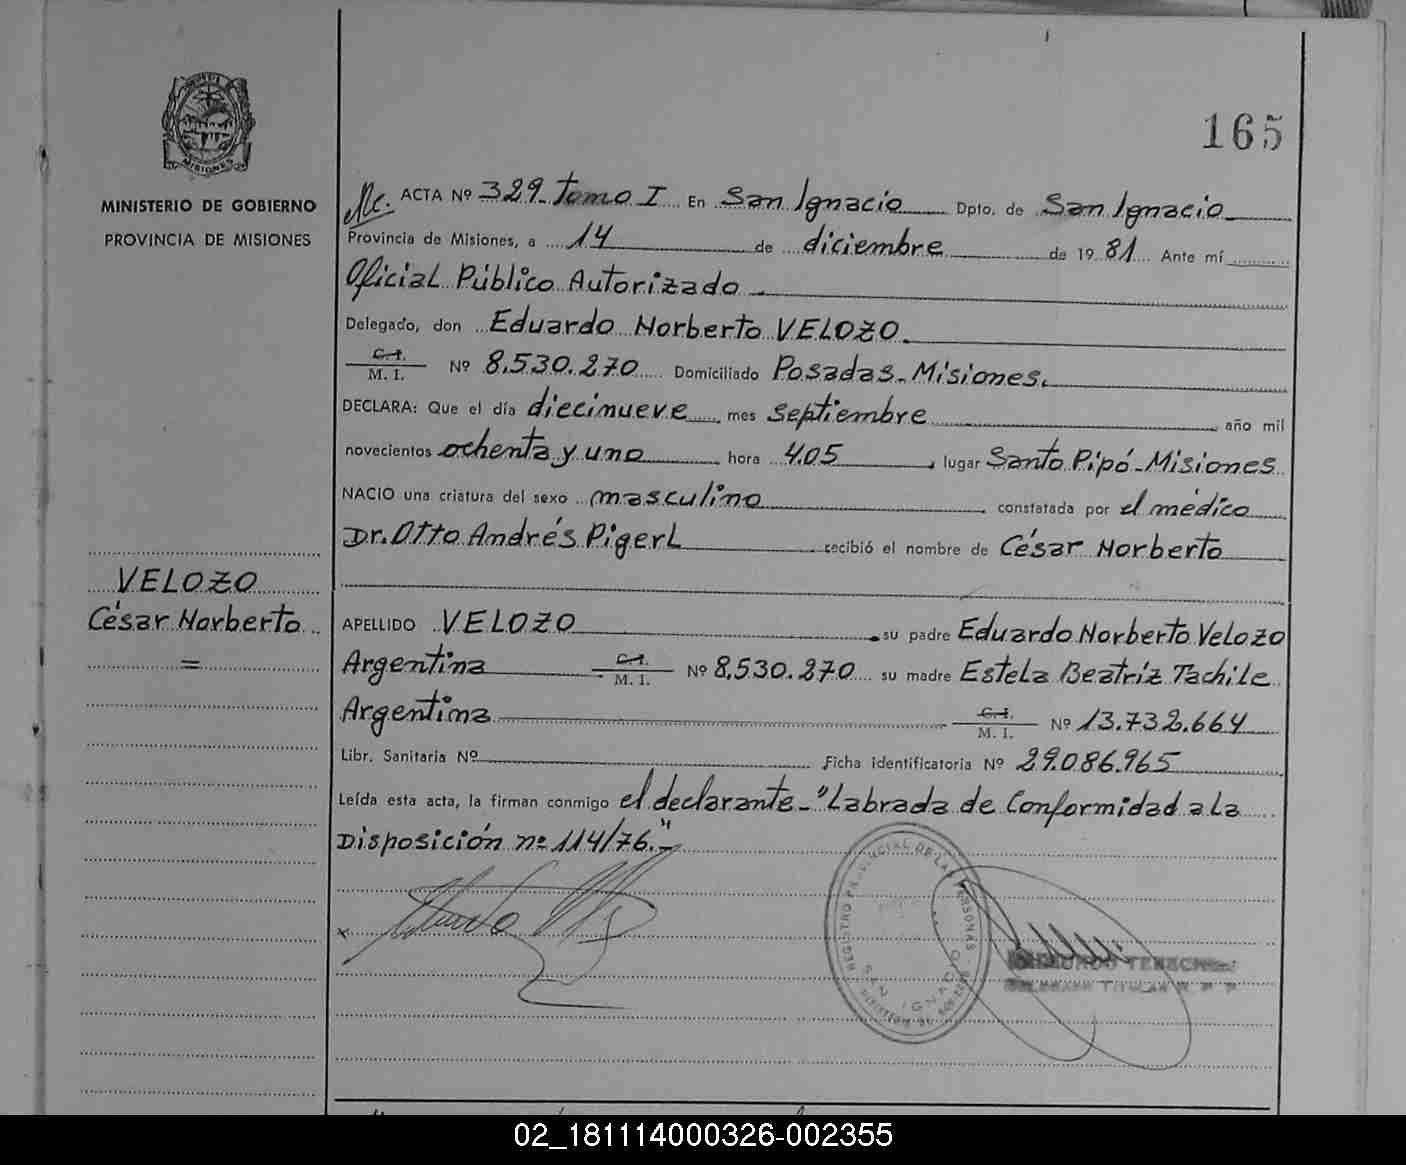 165
MISIONES
MINISTERIO DE GOBIERNO
PROVINCIA DE MISIONES
VELOZO
César Norberto
=
ACTA Nº 329 - Tomo I En San Ignacio Dpto. de San Ignacio
Provincia de Misiones, a 14 de diciembre de 19 81 Ante mí
Oficial Público Autorizado
Delegado, don Eduardo Norberto VELOZO.
C.I. / M. I. Nº 8.530.270 Domiciliado Posadas - Misiones.
DECLARA: Que el día diecinueve mes septiembre año mil
novecientos ochenta y uno hora 4.05 lugar Santo Pipó - Misiones
NACIO una criatura del sexo masculino constatada por el médico
Dr. Otto Andrés Pigerl recibió el nombre de César Norberto
APELLIDO VELOZO su padre Eduardo Norberto Velozo
Argentina C.I. / M. I. Nº 8.530.270 su madre Estela Beatriz Tachile
Argentina C.I. / M. I. Nº 13.732.664
Libr. Sanitaria Nº Ficha identificatoria Nº 29.086.965
Leída esta acta, la firman conmigo el declarante - "Labrada de Conformidad a la
Disposición nº 114/76." -
REGISTRO PROVINCIAL DE LAS PERSONAS
SAN IGNACIO
DELEGADO TITULAR R. P. P.
02_181114000326-002355